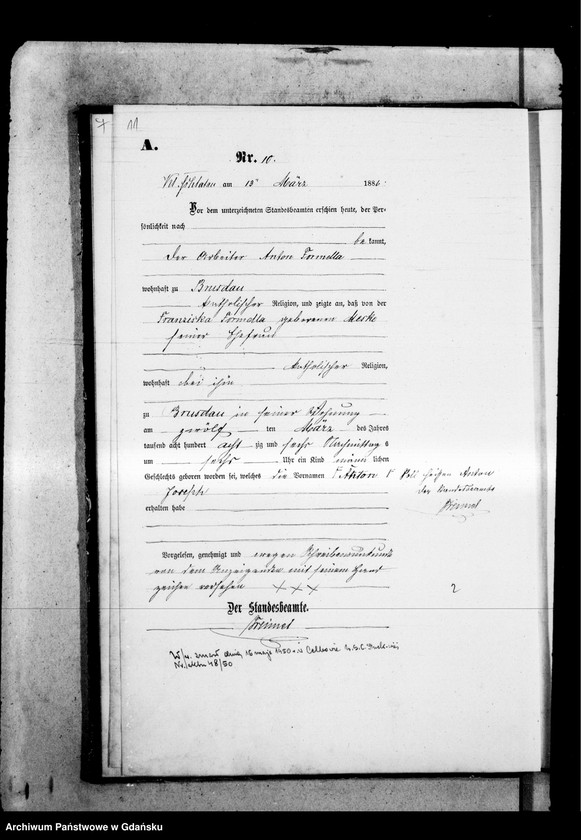 7
11
A.
Nr. 10.
am 13 März 1886.
Vor dem unterzeichneten Standesbeamten erschien heute, der Per-
sönlichkeit nach
be kannt,
der Arbeiter Anton Formella
wohnhaft zu Brusdau
katholischer Religion, und zeigte an, daß von der
Franziska Formella geborenen
seiner Ehefrau
katholischer Religion,
wohnhaft bei ihm
zu Brusdau in seiner Wohnung
am zwölf ten März des Jahres
tausend acht hundert acht zig und sechs Nachmittag s
um sechs Uhr ein Kind männ lichen
Geschlechts geboren worden sei, welches die Vornamen
Soll heißen Anton
Der Standesbeamte
Joseph
erhalten habe
Vorgelesen, genehmigt und wegen Schreibensunkunde
von dem Anzeigenden mit seinem Hand
zeichen versehen XXX
2
Der Standesbeamte.
W/w. zmarł dnia 16 maja 1950 r. w
48/50
Archiwum Państwowe w Gdańsku